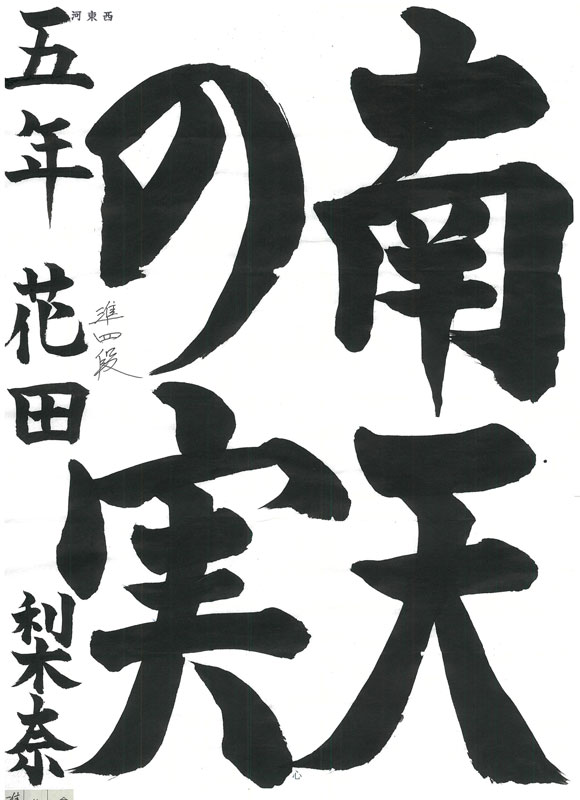 南天
の実
準四段
五年 花田 梨奈
西東河
心